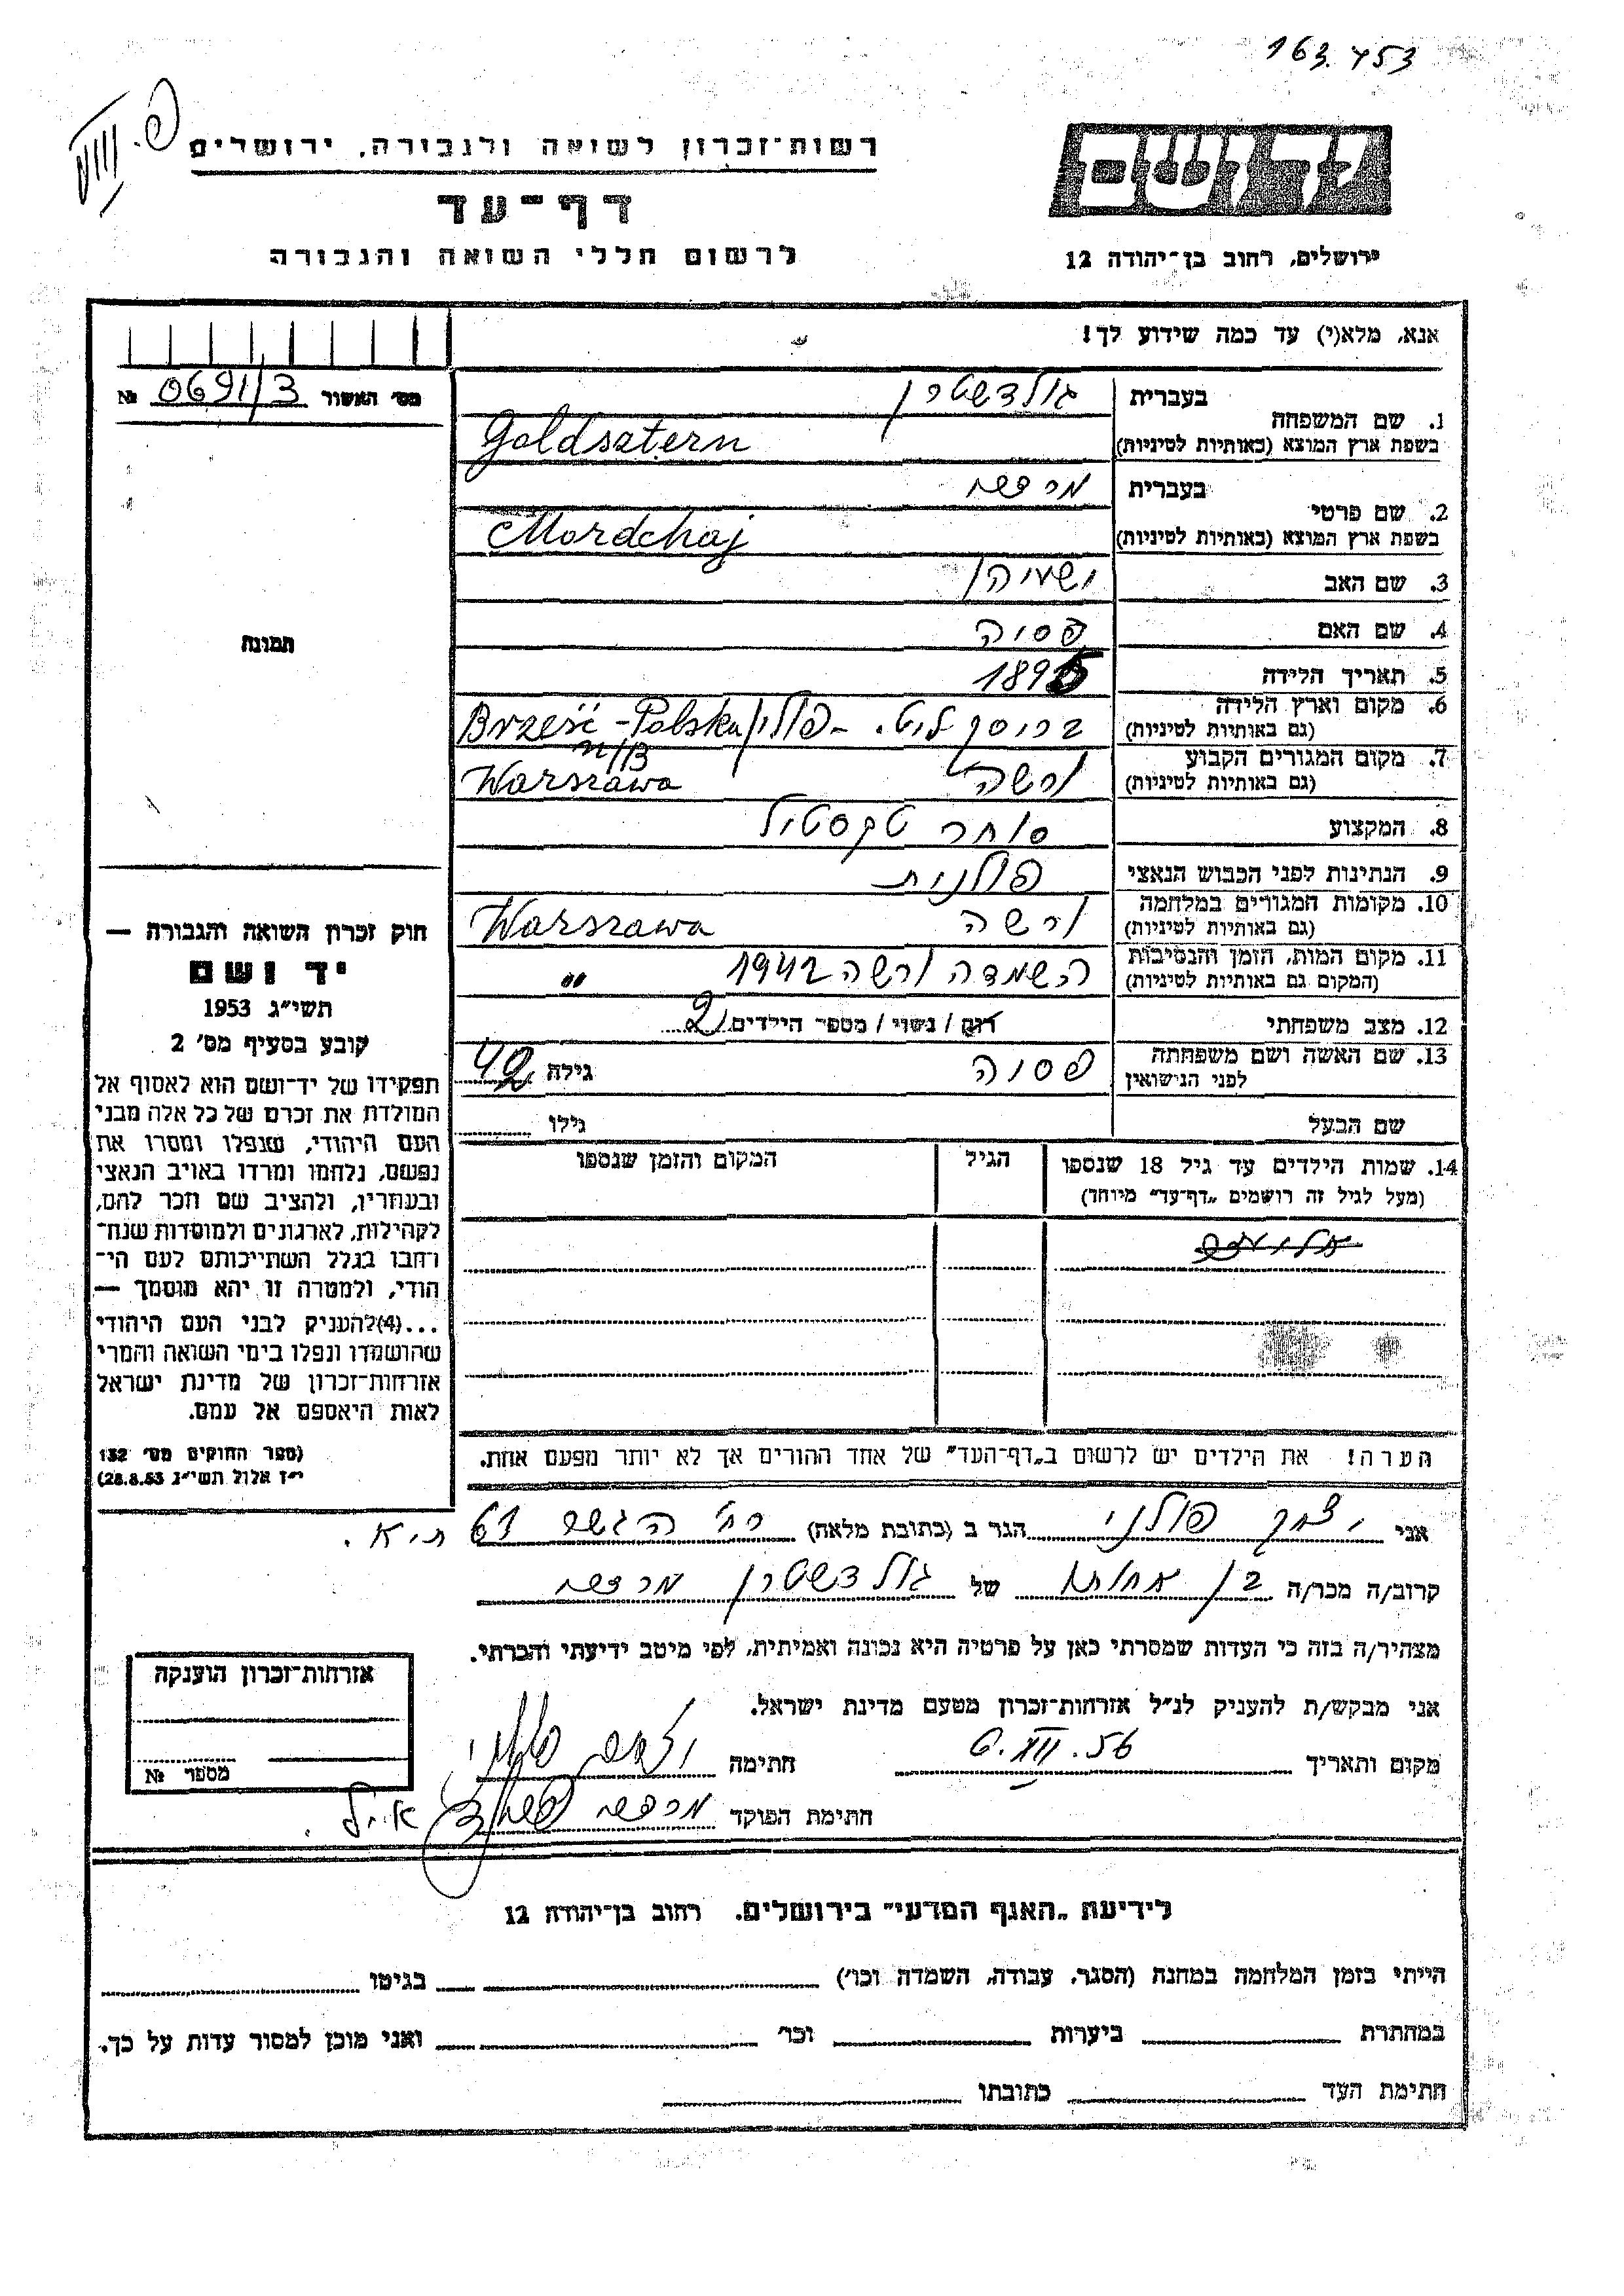 163.453
רשות־זכרון לשואה ולגבורה, ירושלים
דף־עד
לרשום חללי השואה והגבורה
יד ושם
ירושלים, רחוב בן־יהודה 12
אנא, מלא(י) עד כמה שידוע לך!
מס׳ האשור 0691/3 №
1. שם המשפחה
בעברית גולדשטרן
בשפת ארץ המוצא (באותיות לטיניות) Goldsztern
2. שם פרטי
בעברית מרדכי
בשפת ארץ המוצא (באותיות לטיניות) Mordchaj
3. שם האב ישעיהו
4. שם האם פסיה
5. תאריך הלידה 1895
6. מקום וארץ הלידה
(גם באותיות לטיניות) בריסק ליט. - פולין/ Brześć - Polska
n/B
7. מקום המגורים הקבוע
(גם באותיות לטיניות) ורשה Warszawa
8. המקצוע סוחר טקסטיל
9. הנתינות לפני הכבוש הנאצי פולנית
10. מקומות המגורים במלחמה
(גם באותיות לטיניות) ורשה Warszawa
11. מקום המות, הזמן והנסיבות
(המקום גם באותיות לטיניות) השמדה ורשה 1942 "
12. מצב משפחתי רוק / נשוי / מספר הילדים 2
13. שם האשה ושם משפחתה
לפני הנישואין פסיה גילה 42
שם הבעל גילו
14. שמות הילדים עד גיל 18 שנספו הגיל המקום והזמן שנספו
(מעל לגיל זה רושמים „דף־עד" מיוחד)
הערה! את הילדים יש לרשום ב„דף־העד" של אחד ההורים אך לא יותר מפעם אחת.
תמונה
חוק זכרון השואה והגבורה —
יד ושם
תשי״ג 1953
קובע בסעיף מס׳ 2
תפקידו של יד־ושם הוא לאסוף אל
המולדת את זכרם של כל אלה מבני
העם היהודי, שנפלו ומסרו את
נפשם, נלחמו ומרדו באויב הנאצי
ובעוזריו, ולהציב שם וזכר להם,
לקהילות, לארגונים ולמוסדות שנח־
רבו בגלל השתייכותם לעם הי־
הודי, ולמטרה זו יהא מוסמך —
...(4)להעניק לבני העם היהודי
שהושמדו ונפלו בימי השואה והמרי
אזרחות־זכרון של מדינת ישראל
לאות היאספם אל עמם.
(ספר החוקים מס׳ 132
י״ז אלול תשי״ג 28.8.53)
אני יצחק פולני הגר ב (כתובת מלאה) רח׳ הגשר 61 ת.א.
קרוב/ה מכר/ה בן אחותו של גולדשטרן מרדכי
מצהיר/ה בזה כי העדות שמסרתי כאן על פרטיה היא נכונה ואמיתית, לפי מיטב ידיעתי והכרתי.
אני מבקש/ת להעניק לנ״ל אזרחות־זכרון מטעם מדינת ישראל.
מקום ותאריך 6.XII.56 חתימה יצחק פולני
חתימת הפוקד מרדכי
אזרחות־זכרון הוענקה
מספר №
לידיעת „האגף המדעי" בירושלים. רחוב בן־יהודה 12
הייתי בזמן המלחמה במחנה (הסגר, עבודה, השמדה וכו׳) בגיטו
במחתרת ביערות וכו׳ ואני מוכן למסור עדות על כך.
חתימת העד כתובתו